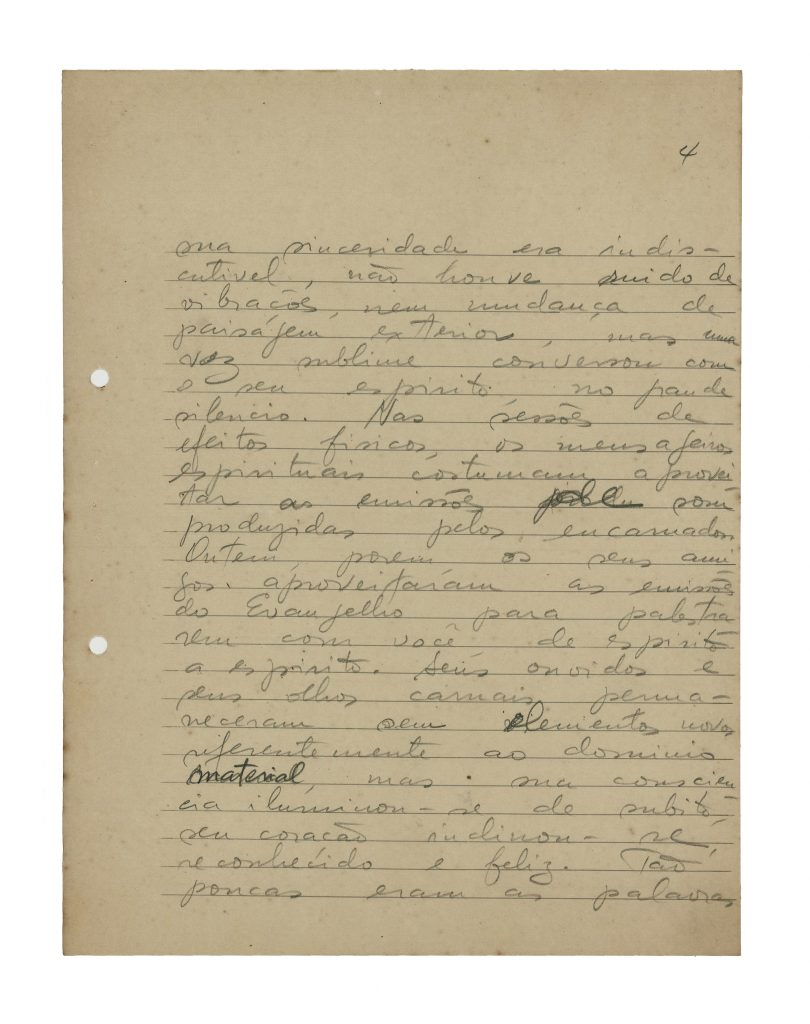 4
sua sinceridade era indis-
cutivel, não houve ruido de
vibrações, nem mudança de
paiságem exterior, mas uma
voz sublime conversou com
o seu espirito no grande
silencio. Nas sessões de
efeitos fisicos, os mensageiros
espirituais costumam aprovei
tar as emissões som
produzidas pelos encarnados
Ontem, porem os seus ami
gos. aproveitaram as emissões
do Evangelho para palestra
rem com você de espirito
a espirito. Seus ouvidos e
seus olhos carnais perma-
neceram sem elementos novos
referentemente ao dominio
material, mas sua conscien
cia iluminou-se de subito,
seu coração inclinou-se,
reconhecido e feliz. Tão
poucas eram as palavras